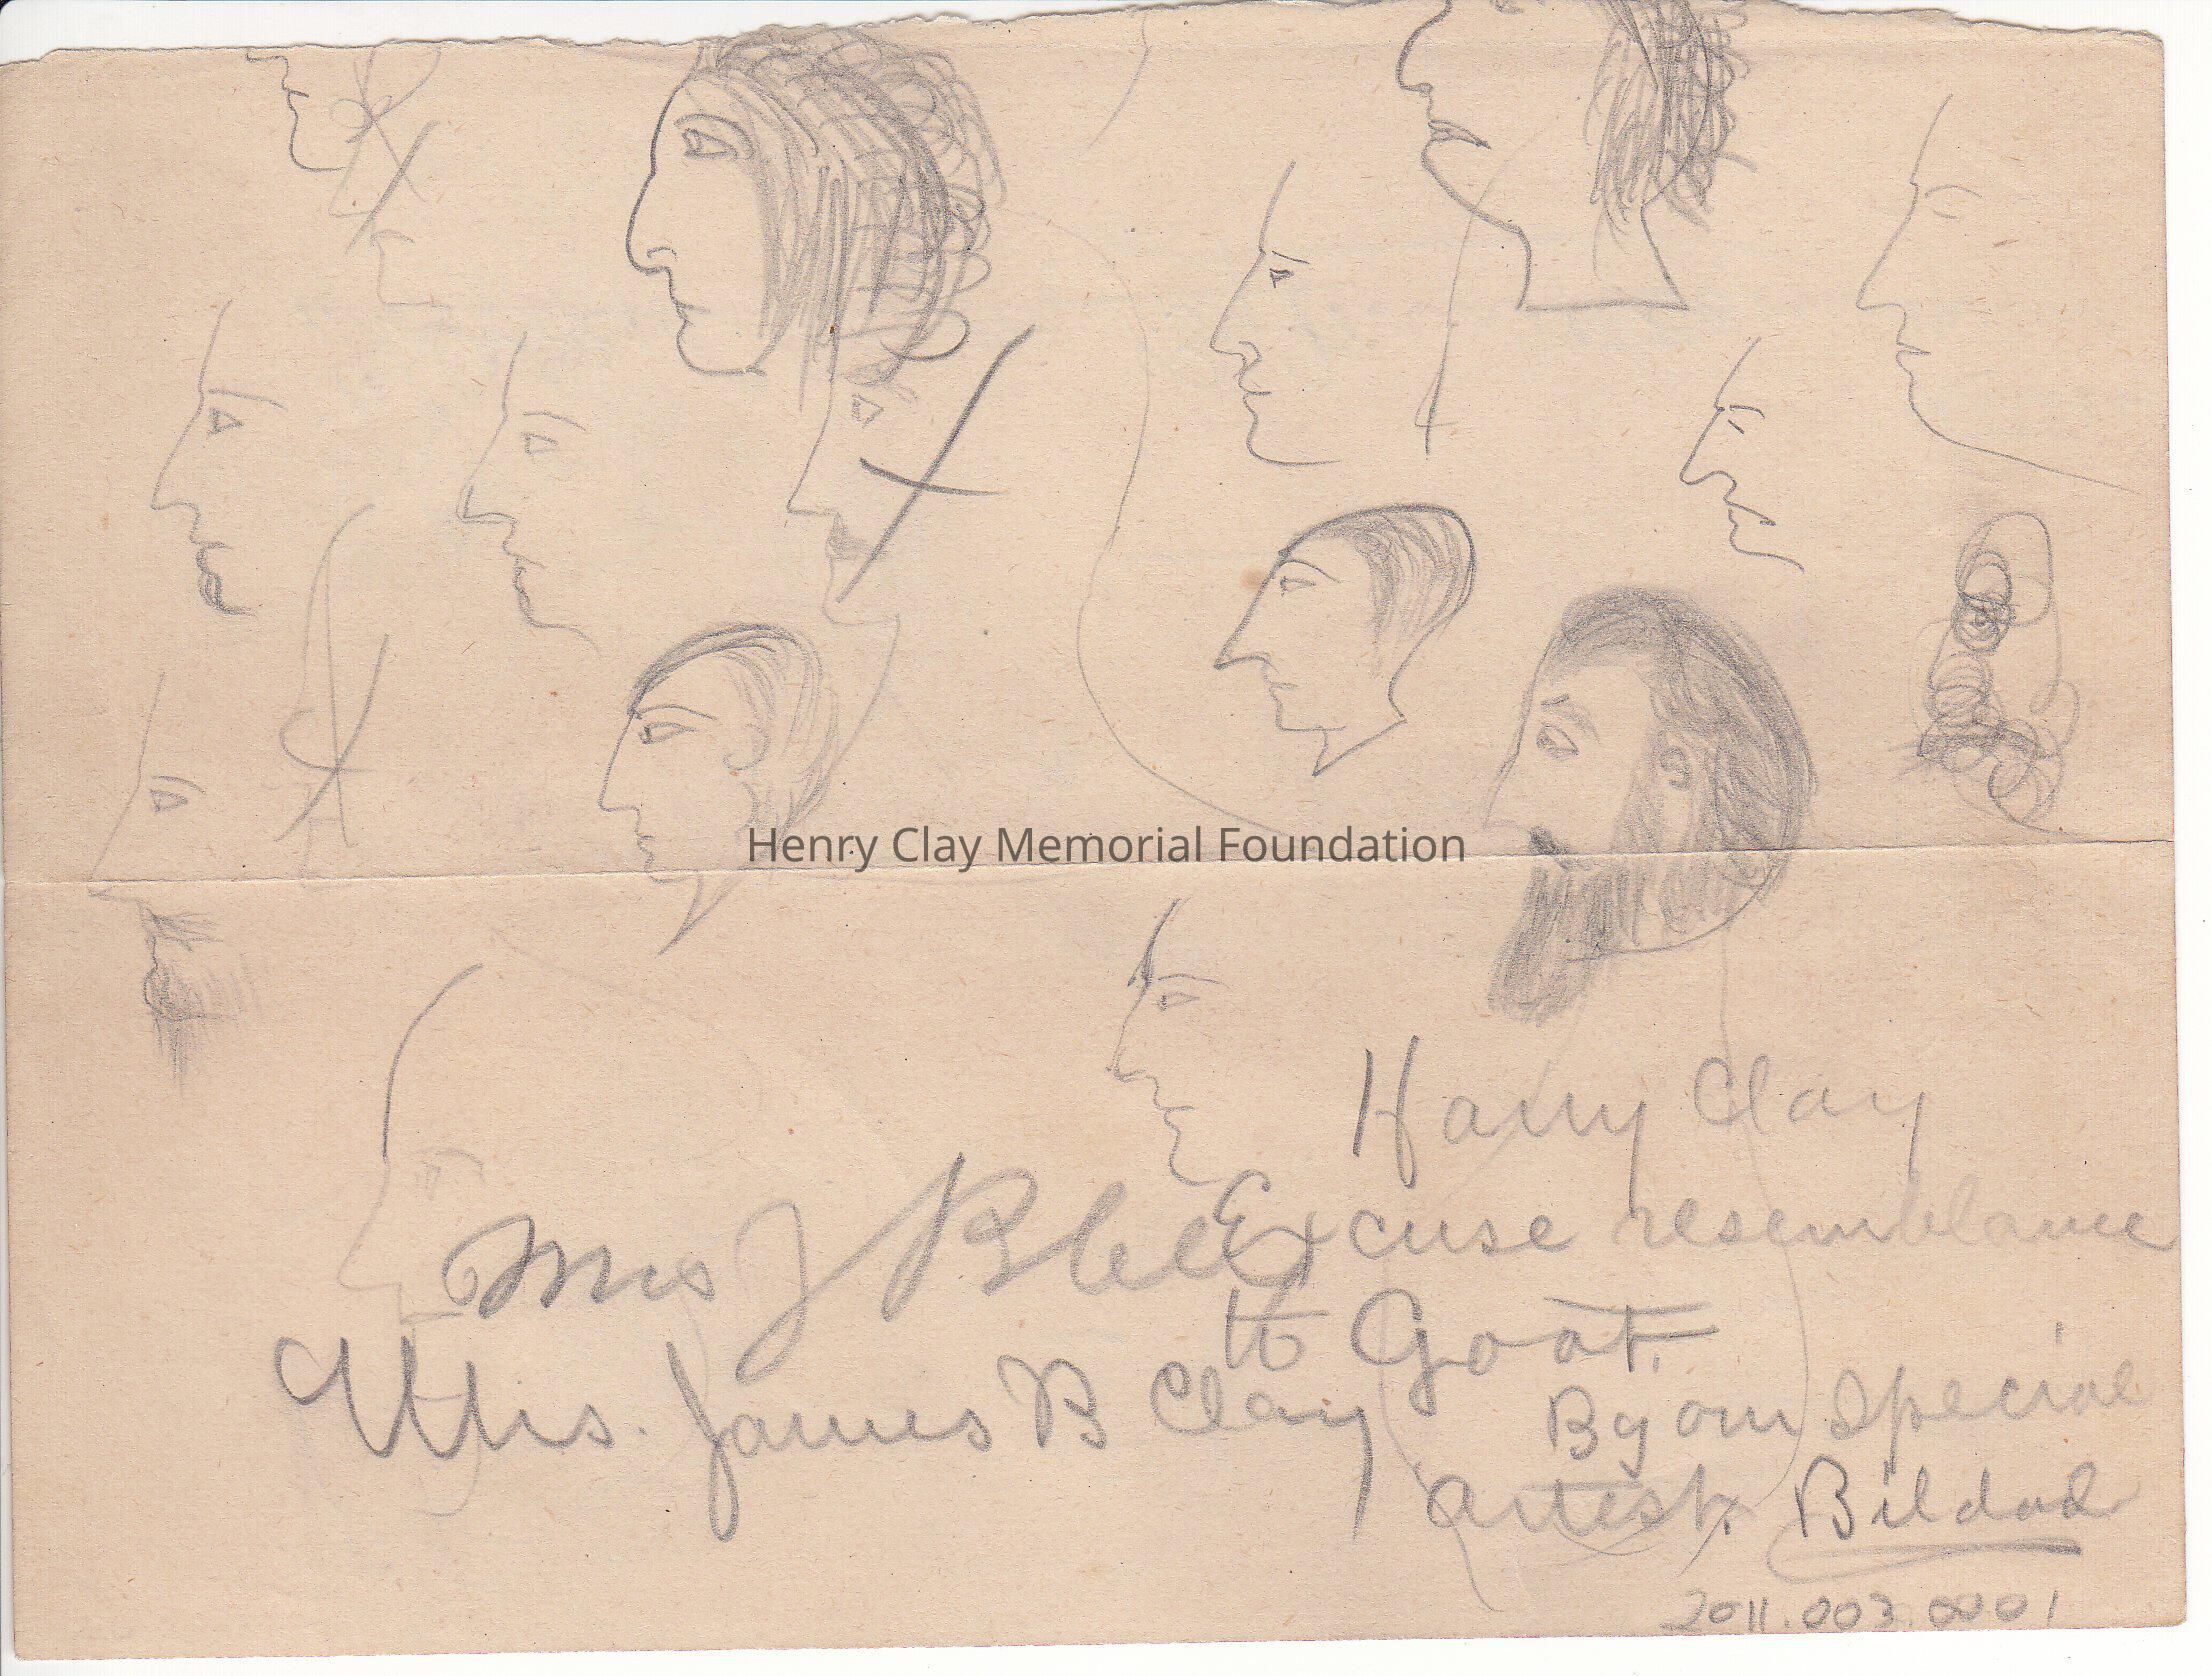 Henry Clay Memorial Foundation
Harry Clay
Excuse resemblance
to Goat.
Mrs J B Clee
Mrs. James B Clay
By our Special
Artest. Bildad
2011.003.0001